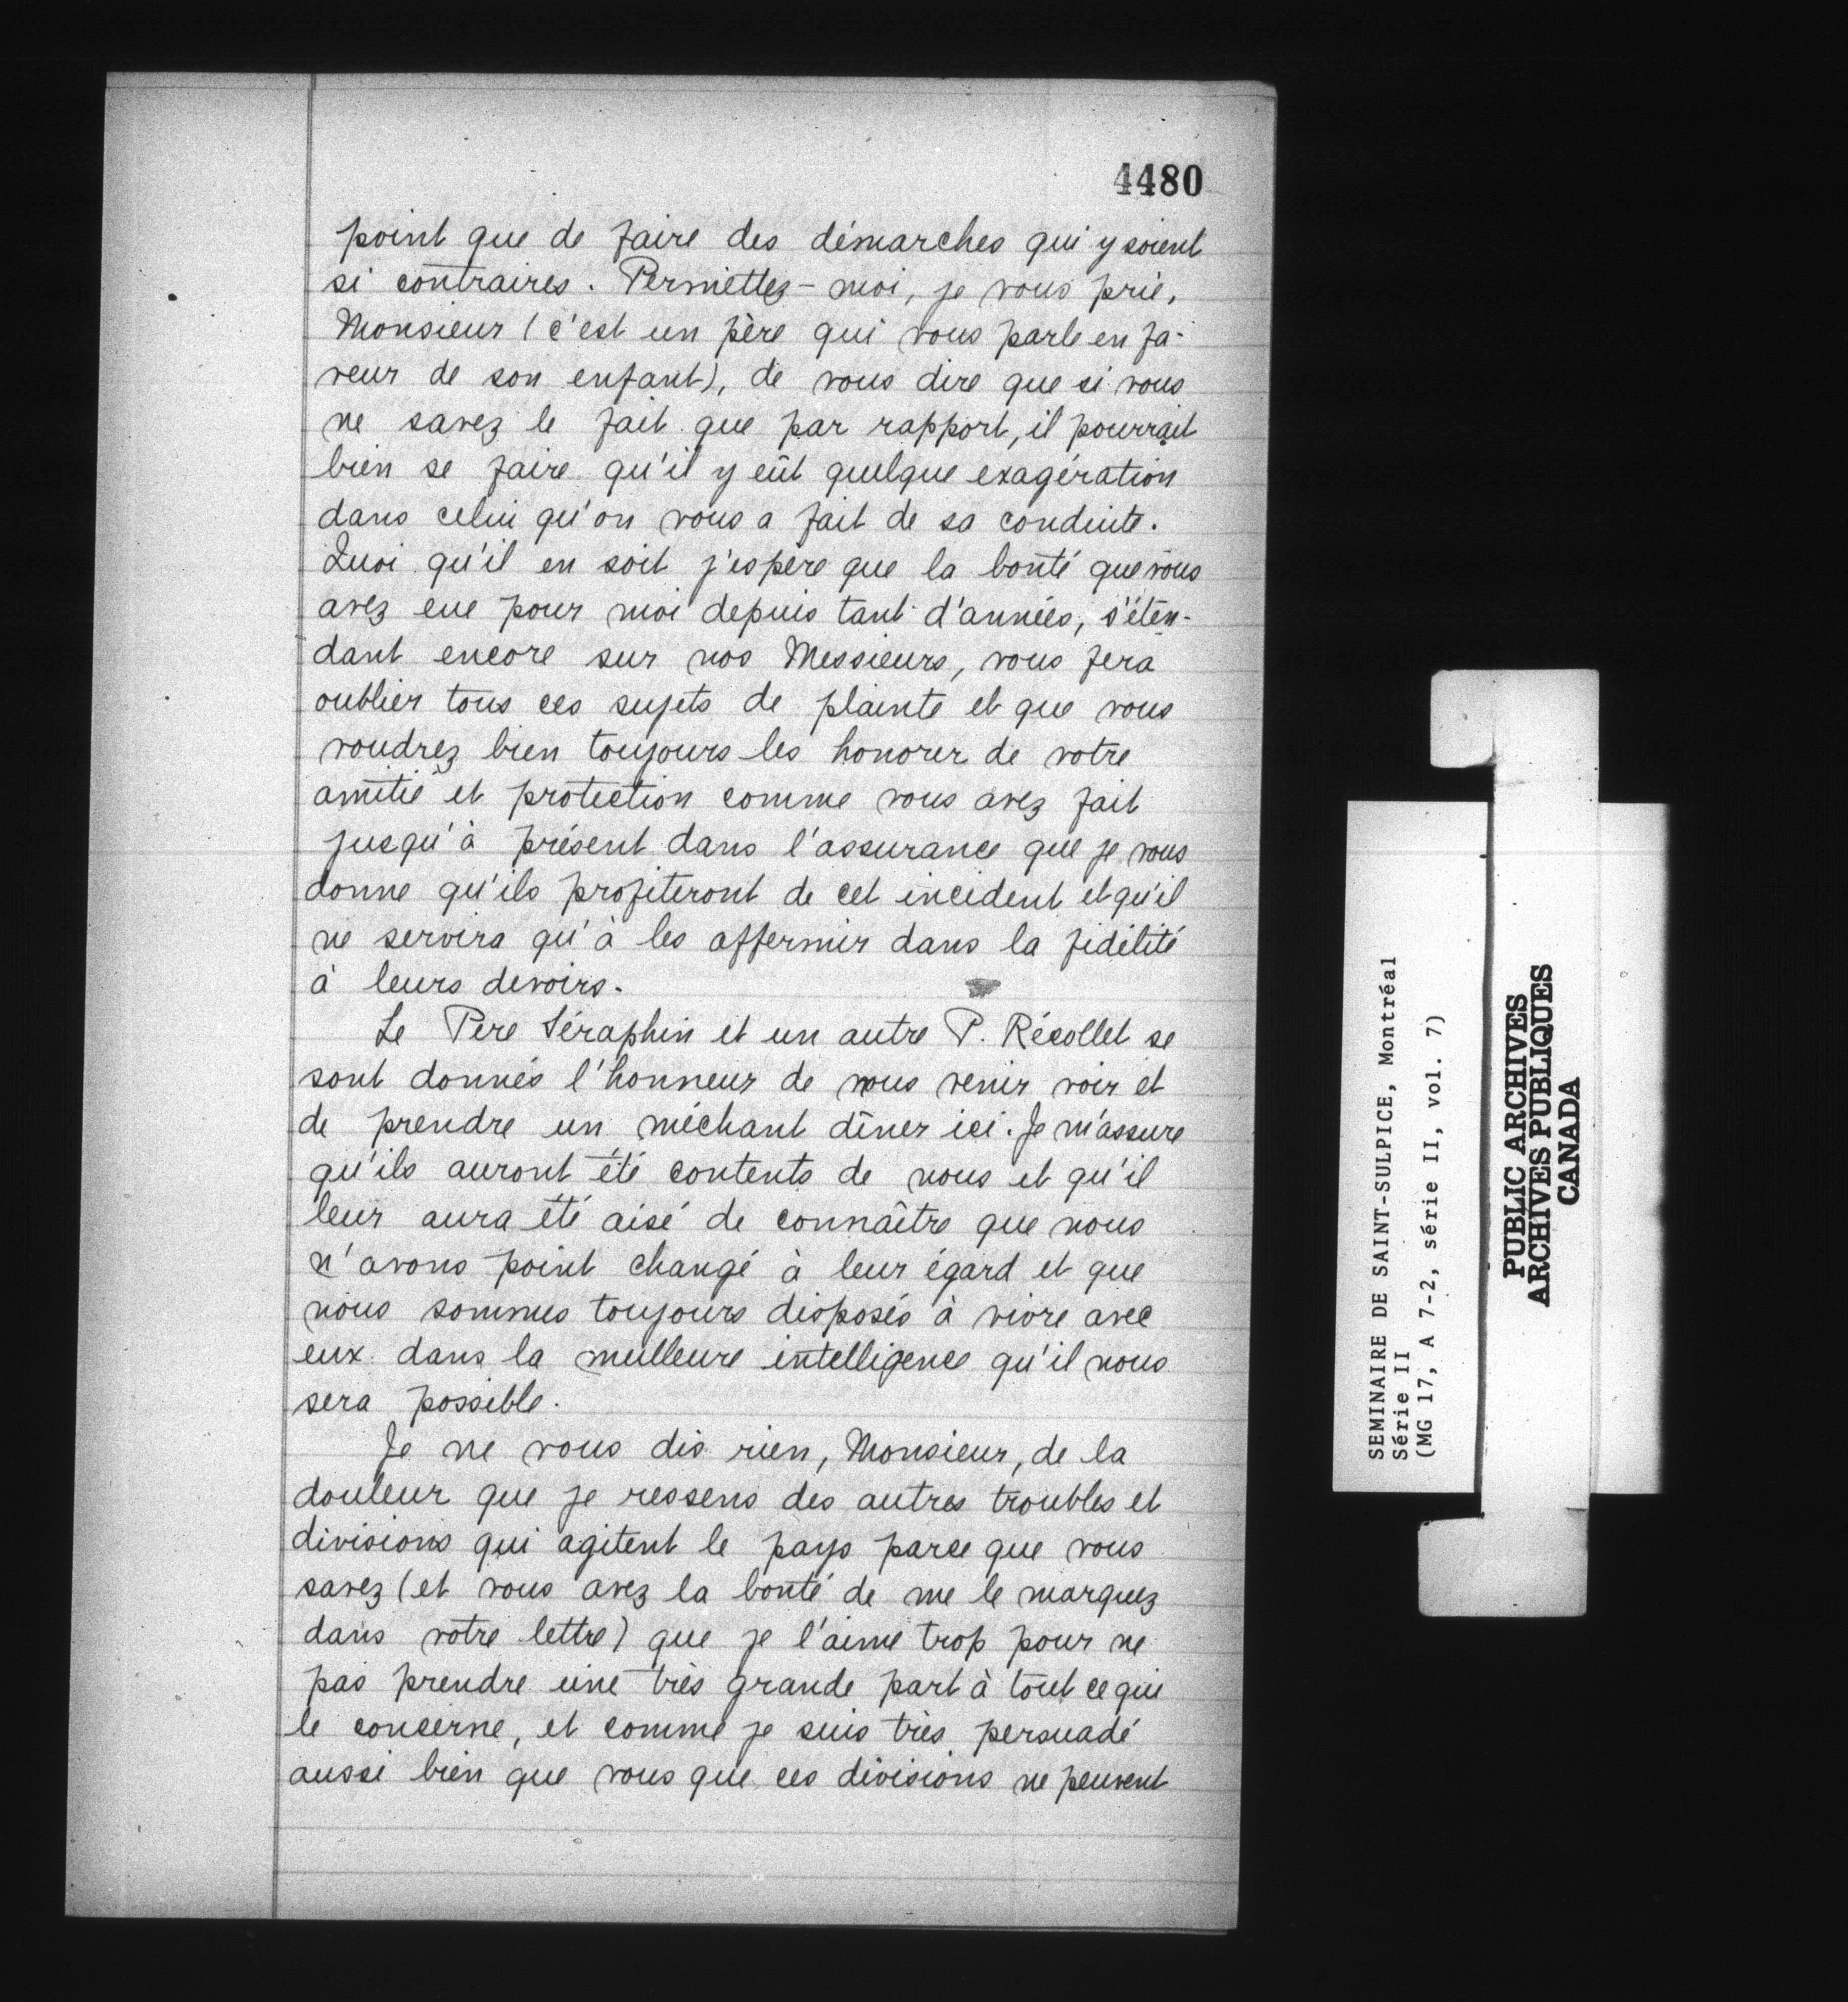 4480
point que de faire des démarches qui y soient
si contraires. Permettez-moi, je vous prie,
Monsieur (c'est un père qui vous parle en fa-
veur de son enfant), de vous dire que si vous
ne savez le fait que par rapport, il pourrait
bien se faire qu'il y eût quelque exagération
dans celui qu'on vous a fait de sa conduite.
Quoi qu'il en soit j'espère que la bonté que vous
avez eue pour moi depuis tant d'années, s'éten-
dant encore sur nos Messieurs, vous fera
oublier tous ces sujets de plainte et que vous
voudrez bien toujours les honorer de votre
amitié et protection comme vous avez fait
jusqu'à présent dans l'assurance que je vous
donne qu'ils profiteront de cet incident et qu'il
ne servira qu'à les affermir dans la fidélité
à leurs devoirs.
Le Père Séraphin et un autre P. Récollet se
sont donnés l'honneur de nous venir voir et
de prendre un méchant dîner ici. Je m'assure
qu'ils auront été contents de nous et qu'il
leur aura été aisé de connaître que nous
n'avons point changé à leur égard et que
nous sommes toujours disposés à vivre avec
eux dans la meilleure intelligence qu'il nous
sera possible.
Je ne vous dis rien, Monsieur, de la
douleur que je ressens des autres troubles et
divisions qui agitent le pays parce que vous
savez (et vous avez la bonté de me le marquez
dans votre lettre) que je l'aime trop pour ne
pas prendre une très grande part à tout ce qui
le concerne, et comme je suis très persuadé
aussi bien que vous que ces divisions ne peuvent
SEMINAIRE DE SAINT-SULPICE, Montréal
Série II
(MG 17, A 7-2, série II, vol. 7)
PUBLIC ARCHIVES
ARCHIVES PUBLIQUES
CANADA